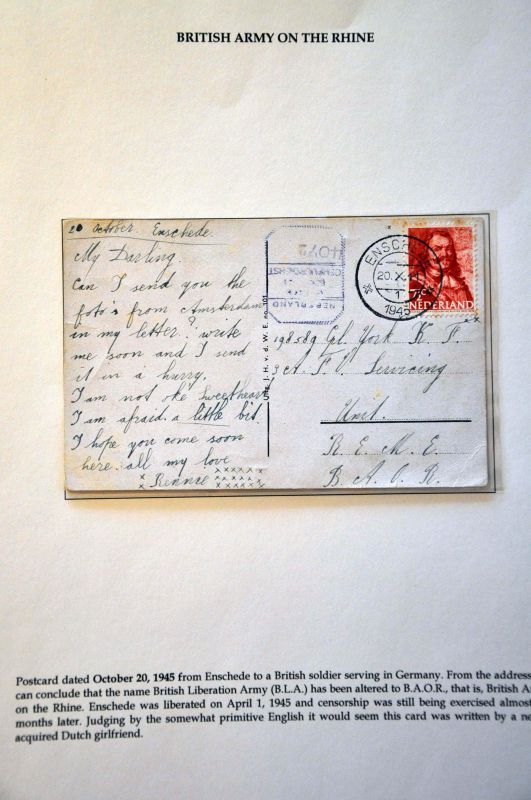 BRITISH ARMY ON THE RHINE
20 October. Enschede.
My Darling.
Can I send you the
foto's from Amsterdam
in my letter? write
me soon and I send
it in a hurry.
I am not oke sweetheart
I am afraid a little bit.
I hope you come soon
here. all my love
x Rennie x x x x x
Uitg. J. H. v. d. W. E. no 101
NEDERLAND
4072
ENSCHEDE
20.X.
1945
7½ c
NEDERLAND
198589 Gl. York K. F.
A. T. V. Servicing
Unit.
R. E. M. E.
B. A. O. R.
Postcard dated October 20, 1945 from Enschede to a British soldier serving in Germany. From the address
can conclude that the name British Liberation Army (B.L.A.) has been altered to B.A.O.R., that is, British A
on the Rhine. Enschede was liberated on April 1, 1945 and censorship was still being exercised almost
months later. Judging by the somewhat primitive English it would seem this card was written by a ne
acquired Dutch girlfriend.